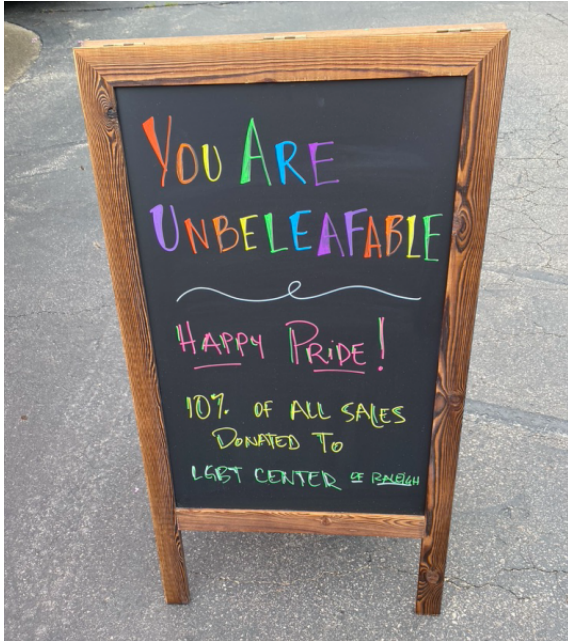 YOU ARE
UNBELEAFABLE
HAPPY PRiDE!
10% OF ALL SALES
DONATED TO
LGBT CENTER OF RALEIGH